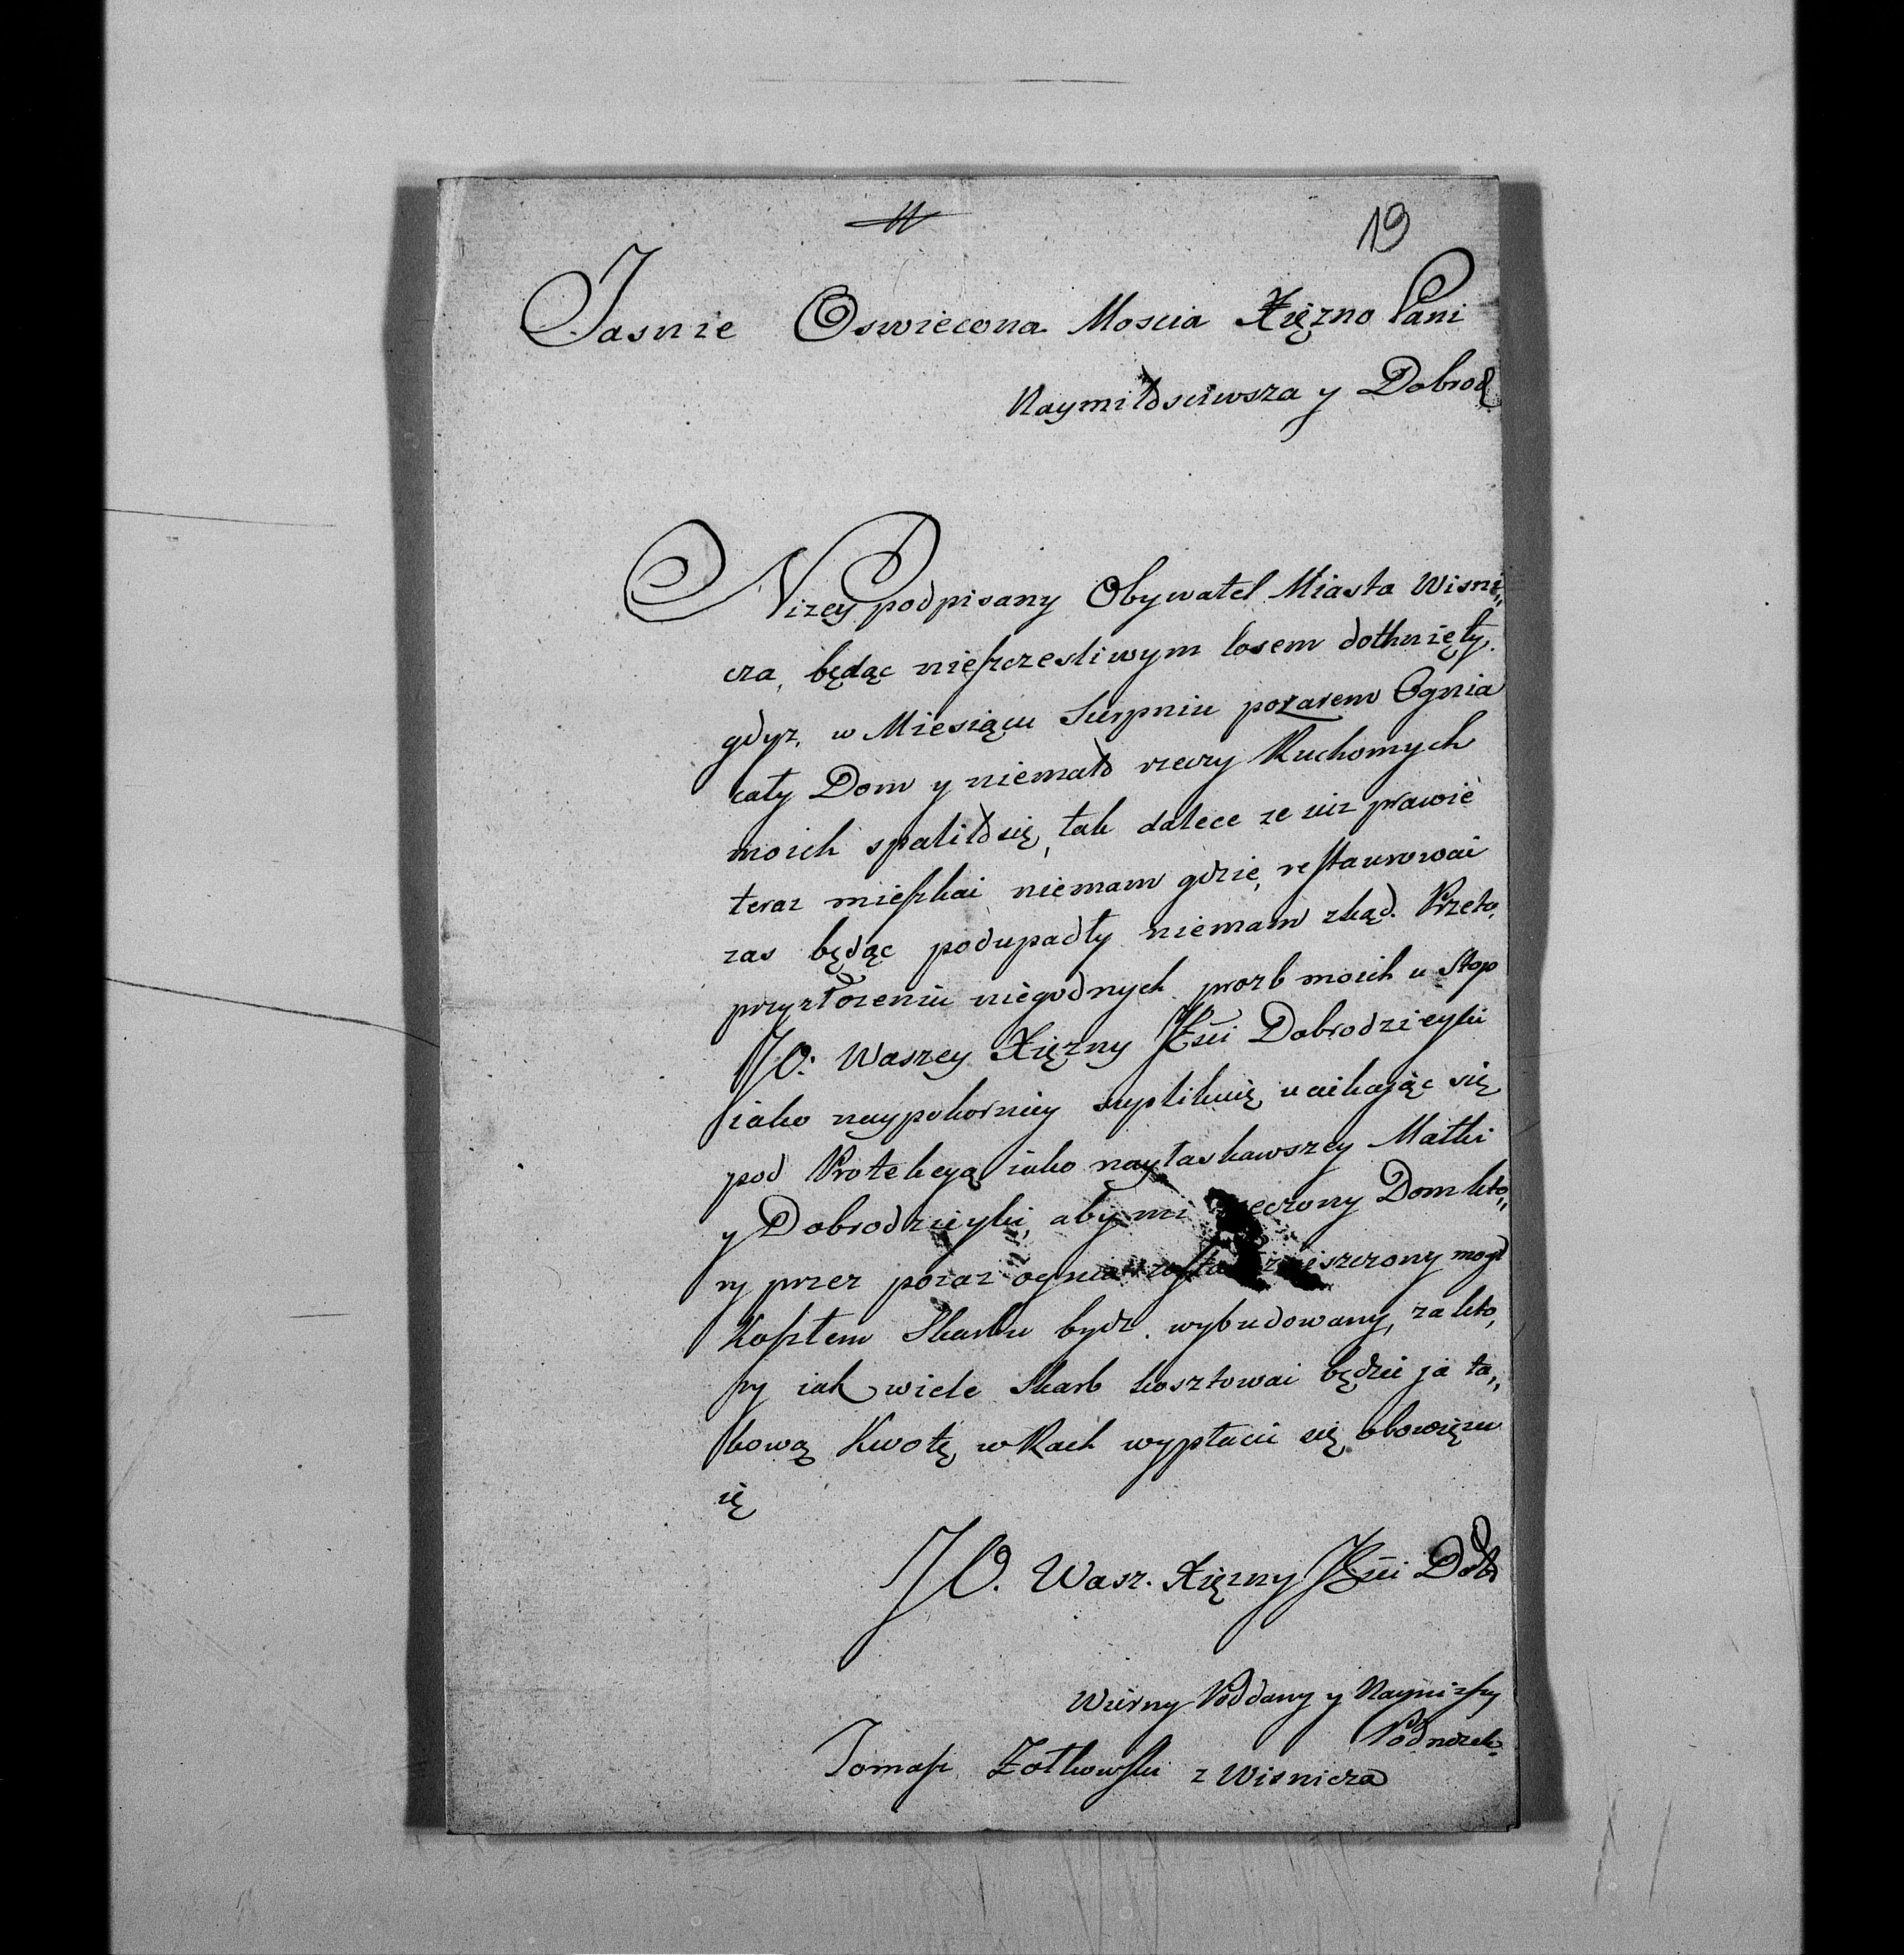 19
Jasnie Oswiecona Moscia Xięzno Pani
Naymiłosciwsza y Dobrod
Nizey podpisany Obywatel Miasta Wisni„
cza, będąc nieszczesliwym losem dothnięty.
gdyz, w Miesiącu Sierpniu pozarem Ognia
cały Dom y niemało rzeczy Ruchomych
moich spaliło się, tak dalece ze iuz prawie
teraz mieszkać niemam gdzie, restaurować
zas będąc podupadły niemam zkąd. Przeto,
przyzłozeniu niegodnych prozb moich u Stop
JO: Waszey Xięzny Jmci Dobrodzieyki
iako naypokorniey suplikuię, uciekając się
pod Protekcyą iako nayłaskawszey Matki
y Dobrodzieyki, aby mi rzeczony Dom któ„
ry przez pozar ognia został zniszczony mogł
Kosztem Skarbu bydz wybudowany, za któ„
ry iak wiele Skarb kosztować będzie ja ta„
kową Kwotę w Rach wypłacić się obowięzu
ię
JO. Wasz. Xięzny Jmci Dobr
Wierny Poddany y Nayniższy
Podnozek
Tomasz Zołkowski z Wisnicza